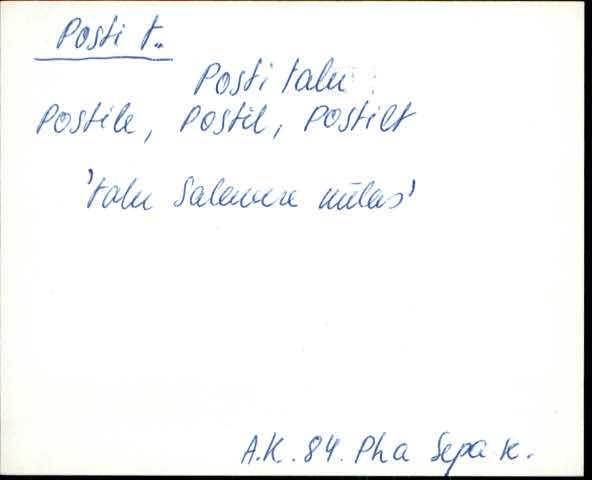 Posti t.
Posti talu
Postile, Postil, Postilt
'talu Salavere külas'
A.K. 84. Pha Sepa k.